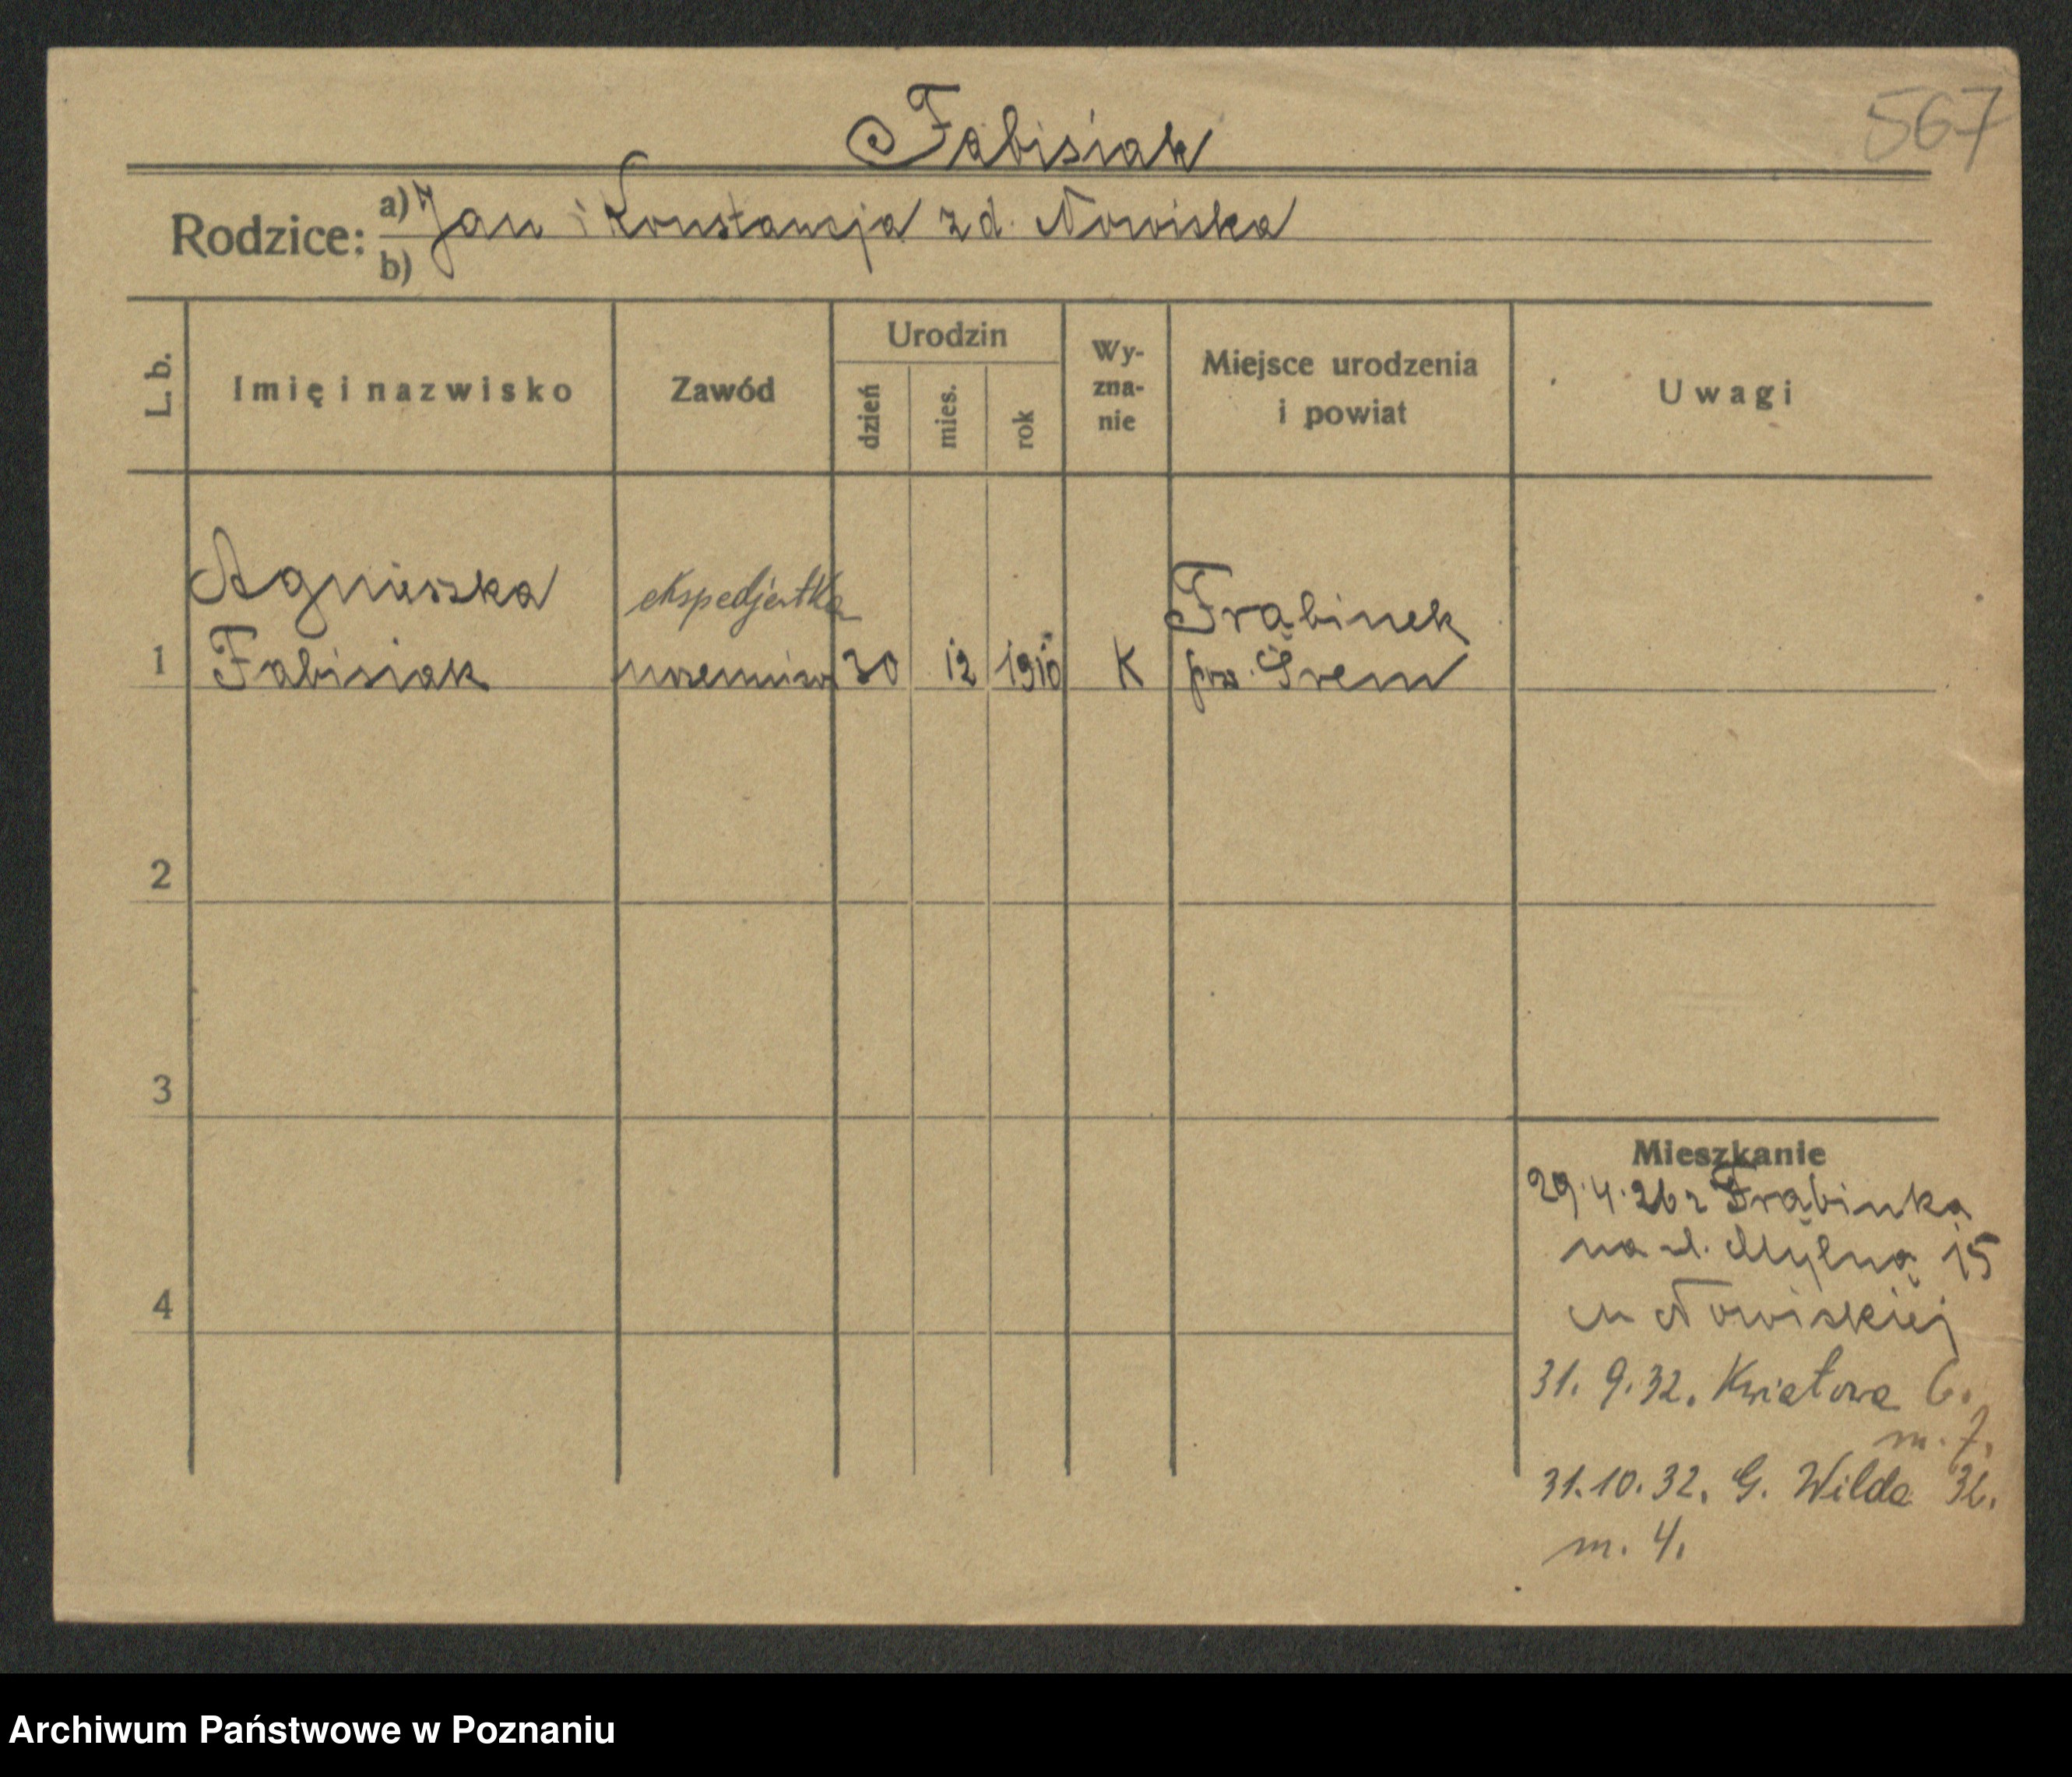 567
Fabisiak
Rodzice: a) Jan i Konstancja z d. Nowiska
b)
L. b.
Imię i nazwisko
Zawód
Urodzin
dzień
mies.
rok
Wy-
zna-
nie
Miejsce urodzenia
i powiat
Uwagi
Agnieszka
Fabisiak
ekspedjentka
uczennica
30 12 1910
K
Trąbinek
pow. Śrem
1
2
3
4
Mieszkanie
29.4.26 z Trąbinka
na ul. Mylną 15
u Nowiskiej
31. 9. 32. Kwiatowa 6.
m. 7.
31. 10. 32. G. Wilda 32.
m. 4.
Archiwum Państwowe w Poznaniu